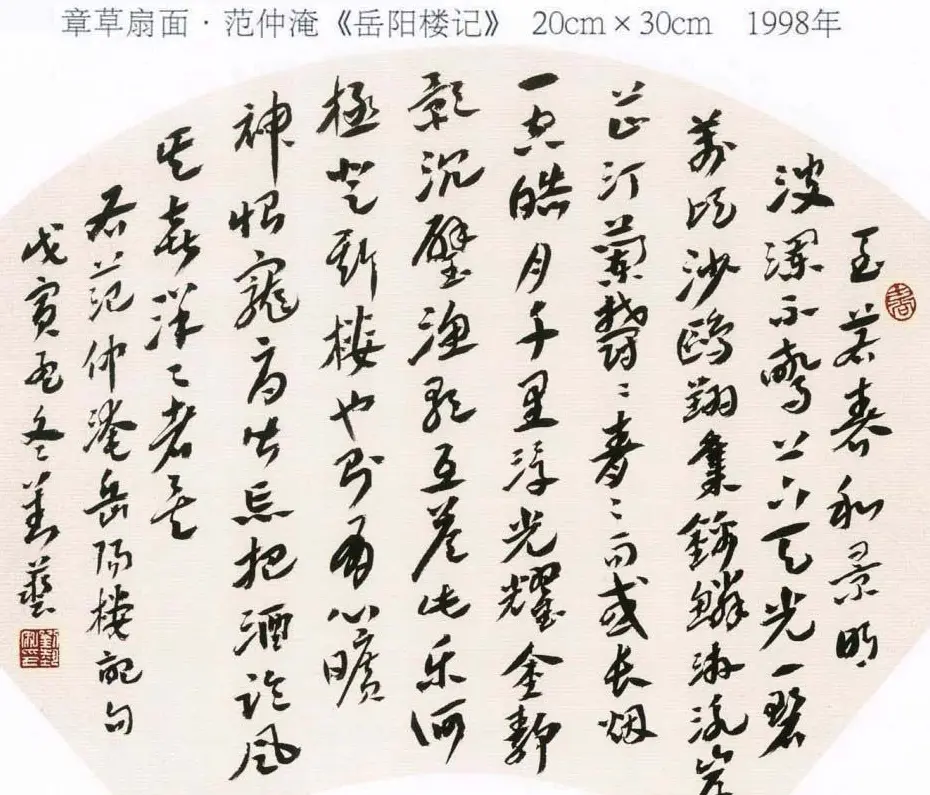 章草扇面·范仲淹《岳阳楼记》 20cm×30cm 1998年
至若春和景明
波瀾不驚上下天光一碧
萬頃沙鷗翔集錦鱗游泳岸
芷汀蘭鬱々青々而或长烟
一空皓月千里浮光耀金静
影沉璧渔歌互答此乐何
極登斯楼也則有心曠
神怡寵辱皆忘把酒临風
其喜洋々者矣
右范仲淹岳陽楼記句
戊寅孟冬藝